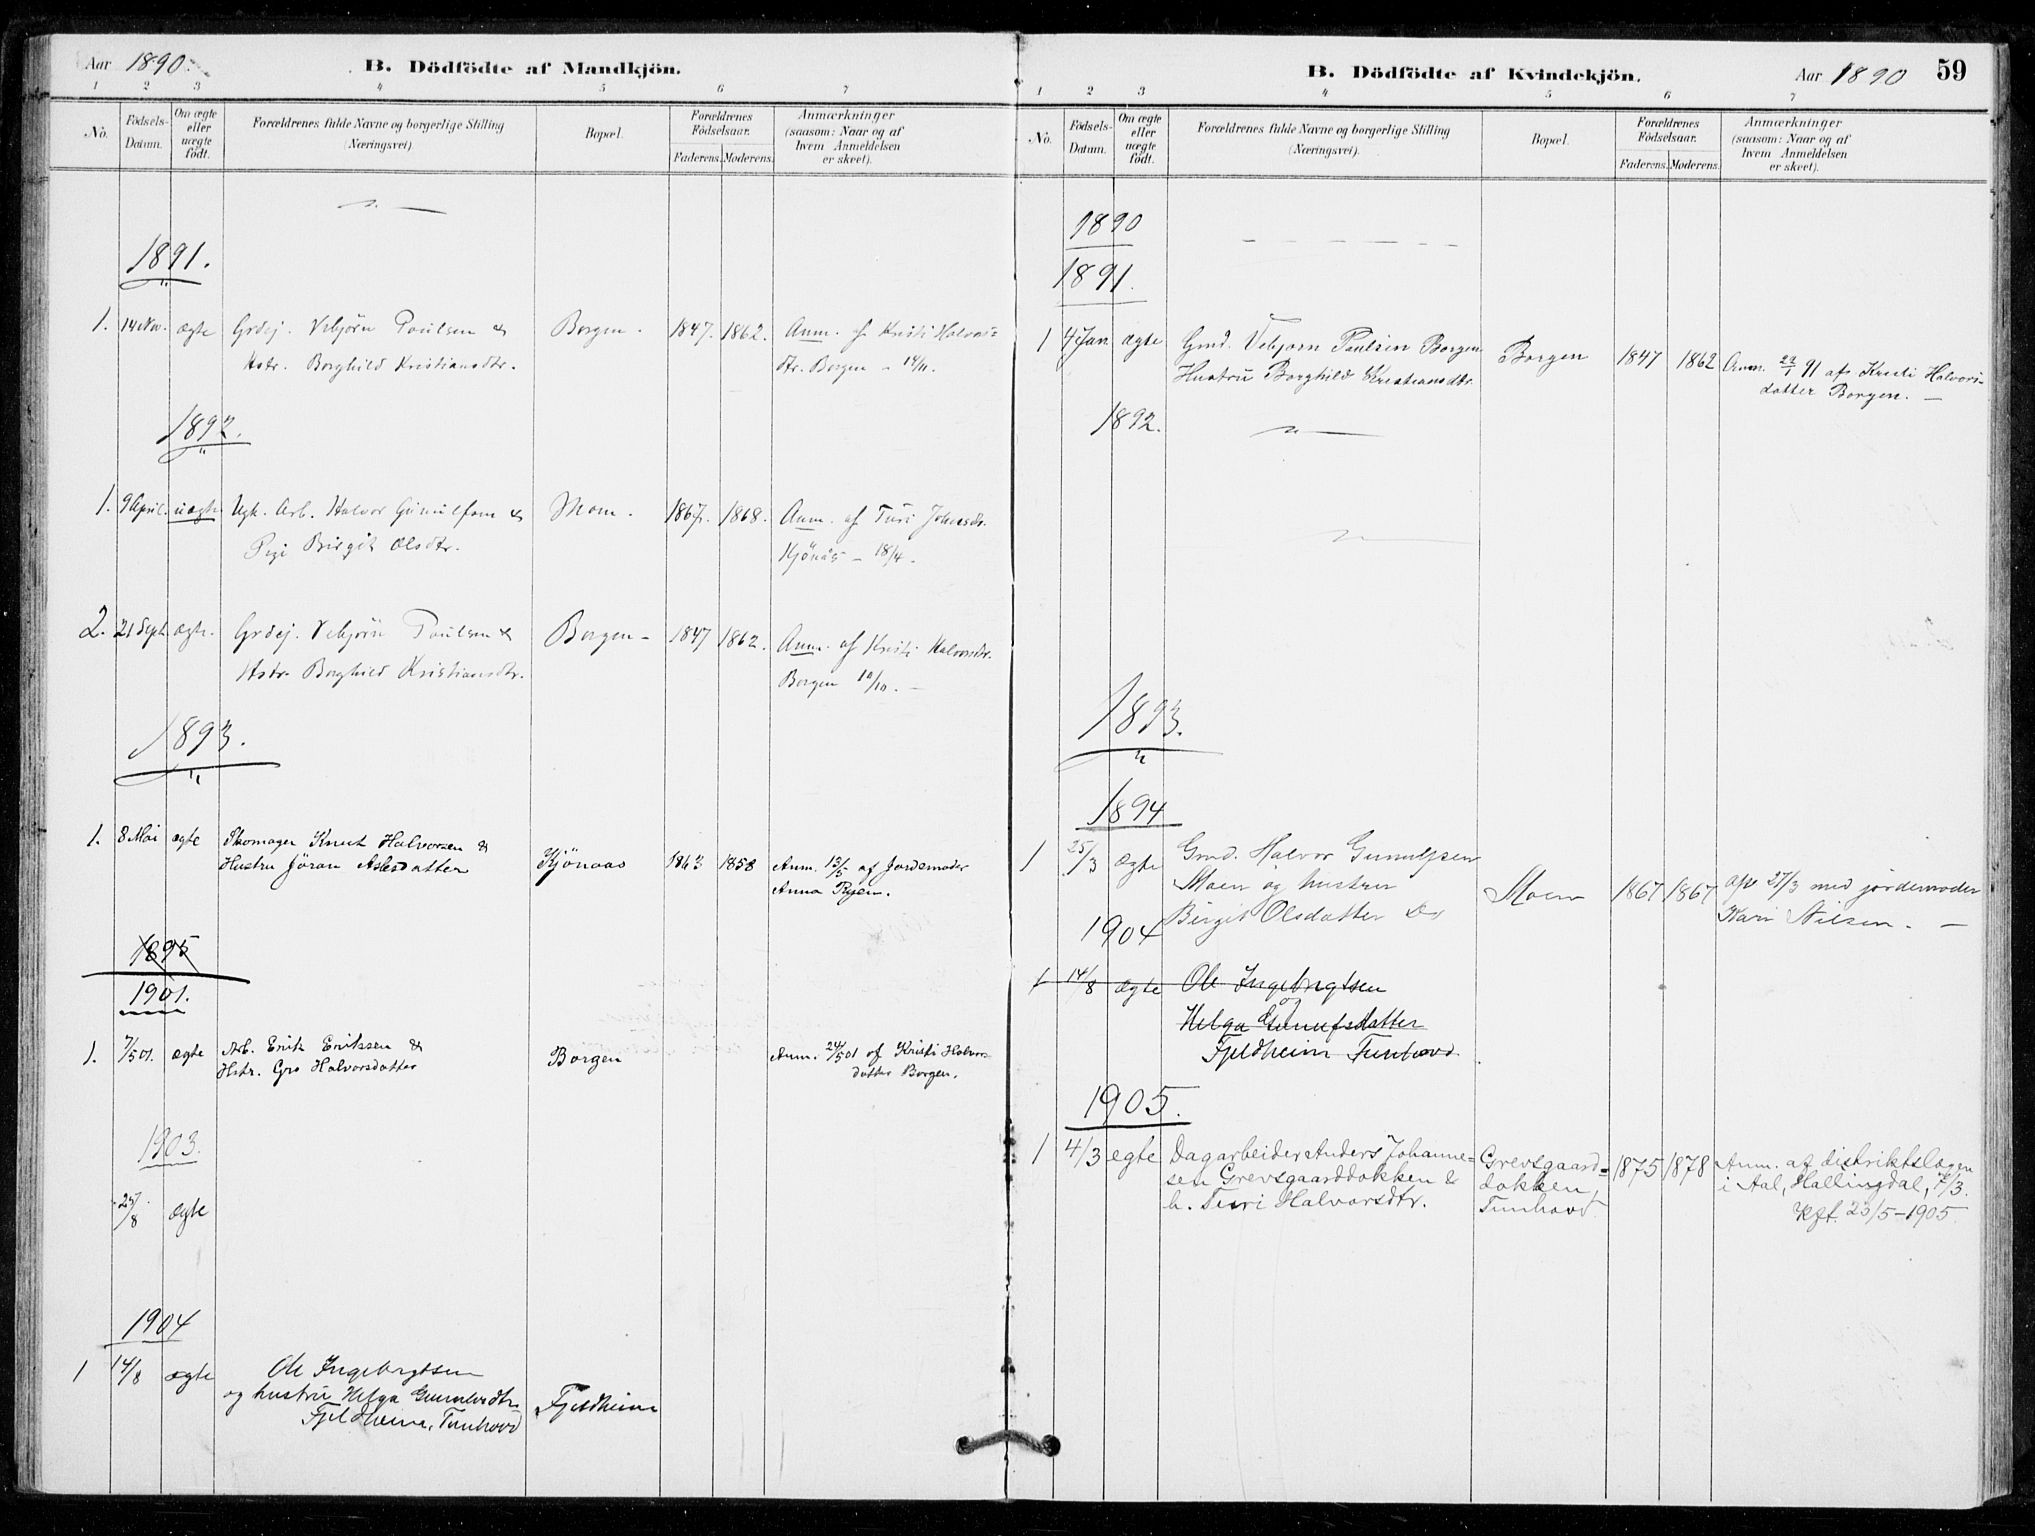 Aar 1890.
B. Dödfödte af Mandkjön.
1 2 3 4 5 6 7
No.
Födsels-
Datum.
Om ægte
eller
uægte
födt.
Forældrenes fulde Navne og borgerlige Stilling
(Næringsvei).
Bopæl.
Forældrenes
Födselsaar.
Faderens. Moderens.
Anmærkninger
(saasom: Naar og af
hvem Anmeldelsen
er skeet).
1891.
1. 14 Nov. ægte Grdej. Vebjörn Paulsen & Borgen. 1847. 1862. Anm. af Kristi Halvors-
Hstr. Borghild Kristiansdtr. dtr. Borgen - 14/11.
1892.
1. 9 April. uægte Ugk. Arb. Halvor Gunulfsen & Moen. 1867. 1868. Anm. af Turi Johnsdtr.
Pige Birgit Olsdtr. Kjönås - 18/4.
2. 21 Sept. ægte. Grdej. Vebjörn Paulsen & Borgen - 1847 1862. Anm. af Kristi Halvorsdtr.
Hstr. Borghild Kristiansdtr. Borgen 10/10. -
1893.
1. 8 Mai ægte Skomager Knut Halvorsen &
Hustru Jöran Aslesdatter Kjönaas 1863 1858 Anm. 13/5 af Jordemoder
Anna Ryen.
1895
1901.
1. 7/5 01. ægte Arb. Erik Eriksen & Borgen Anm. 24/5 01 af Kristi Halvors-
Hstr. Gro Halvorsdatter datter Borgen.
1903.
25/8 ægte
1904
1 14/8 ægte Ole Ingebrigtsen
og hustru Helga Gunulvsdtr. Fjeldheim
Fjeldheim, Tunhovd
B. Dödfödte af Kvindekjön.
Aar 1890 59
1 2 3 4 5 6 7
No.
Födsels-
Datum.
Om ægte
eller
uægte
födt.
Forældrenes fulde Navne og borgerlige Stilling
(Næringsvei).
Bopæl.
Forældrenes
Födselsaar.
Faderens. Moderens.
Anmærkninger
(saasom: Naar og af
hvem Anmeldelsen
er skeet).
1890
1891.
1 4 Jan. ægte Gmd. Vebjørn Paulsen Borgen
Hustru Borghild Kristiansdtr. Borgen 1847 1862 Anm. 22/1 91 af Kristi Halvors-
datter Borgen. -
1892.
1893.
1894
1 25/3 ægte Gmd. Halvor Gunulfsen
Moen og hustru
Birgit Olsdatter Moen 1867 1867 afv 27/3 med jordemoder
Kari Nilsen. -
1904
1 14/8 ægte Ole Ingebrigtsen
og
Helga Gunufsdatter
Fjeldheim Tunhovd
1905.
1 4/3 egte Dagarbeider Anders Johanne-
sen Grevsgaarddokken &
h. Turi Halvorsdtr. Grevsgaard-
dokken,
Tunhovd. 1875 1878 Anm. af distriktslægen
i Aal, Hallingdal, 7/3.
Kgf. 23/5-1905.